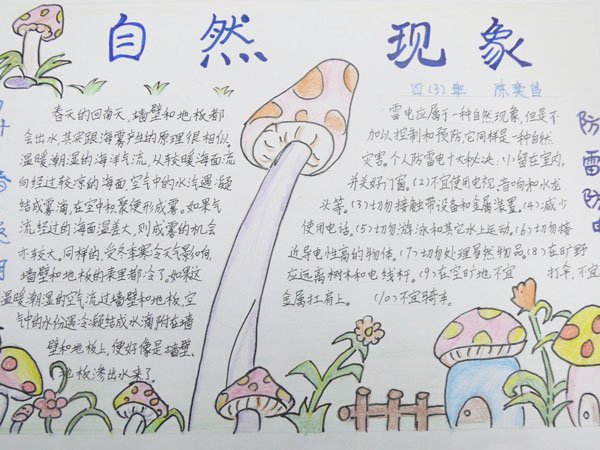 自然现象
四(3)班 陈奕昌
春天的回南天,墙壁和地板都
会出水,其实跟海雾产生的原理很相似。
温暖潮湿的海洋气流,从较暖海面流
向经过较凉的海面,空气中的水汽遇冷凝
结成雾滴,在空中积聚便形成雾。如果气
流经过的海面温差大,则成雾的机会
亦较大。同样的,受冬季寒冷天气影响,
墙壁和地板的表里都冷了。如果这
温暖潮湿的空气流过墙壁和地板,空
气中的水份遇冷凝结成水滴附在墙
壁和地板上,便好像是墙壁、
地板渗出水来了。
雷电应属于一种自然现象,但是不
加以控制和预防,它同样是一种自然
灾害。个人防雷电十大秘决:(1)留在室内,
并关好门窗。(2)不宜使用电视、音响和水龙
头等。(3)切勿接触带设备和金属装置。(4)减少
使用电话。(5)切勿游泳和其它水上运动。(6)切勿接
近导电性高的物体。(7)切勿处理易燃物品。(8)在旷野
应远离树木和电线杆。(9)在空旷地不宜打伞,不宜
金属扛肩上。(10)不宜骑车。
防雷防